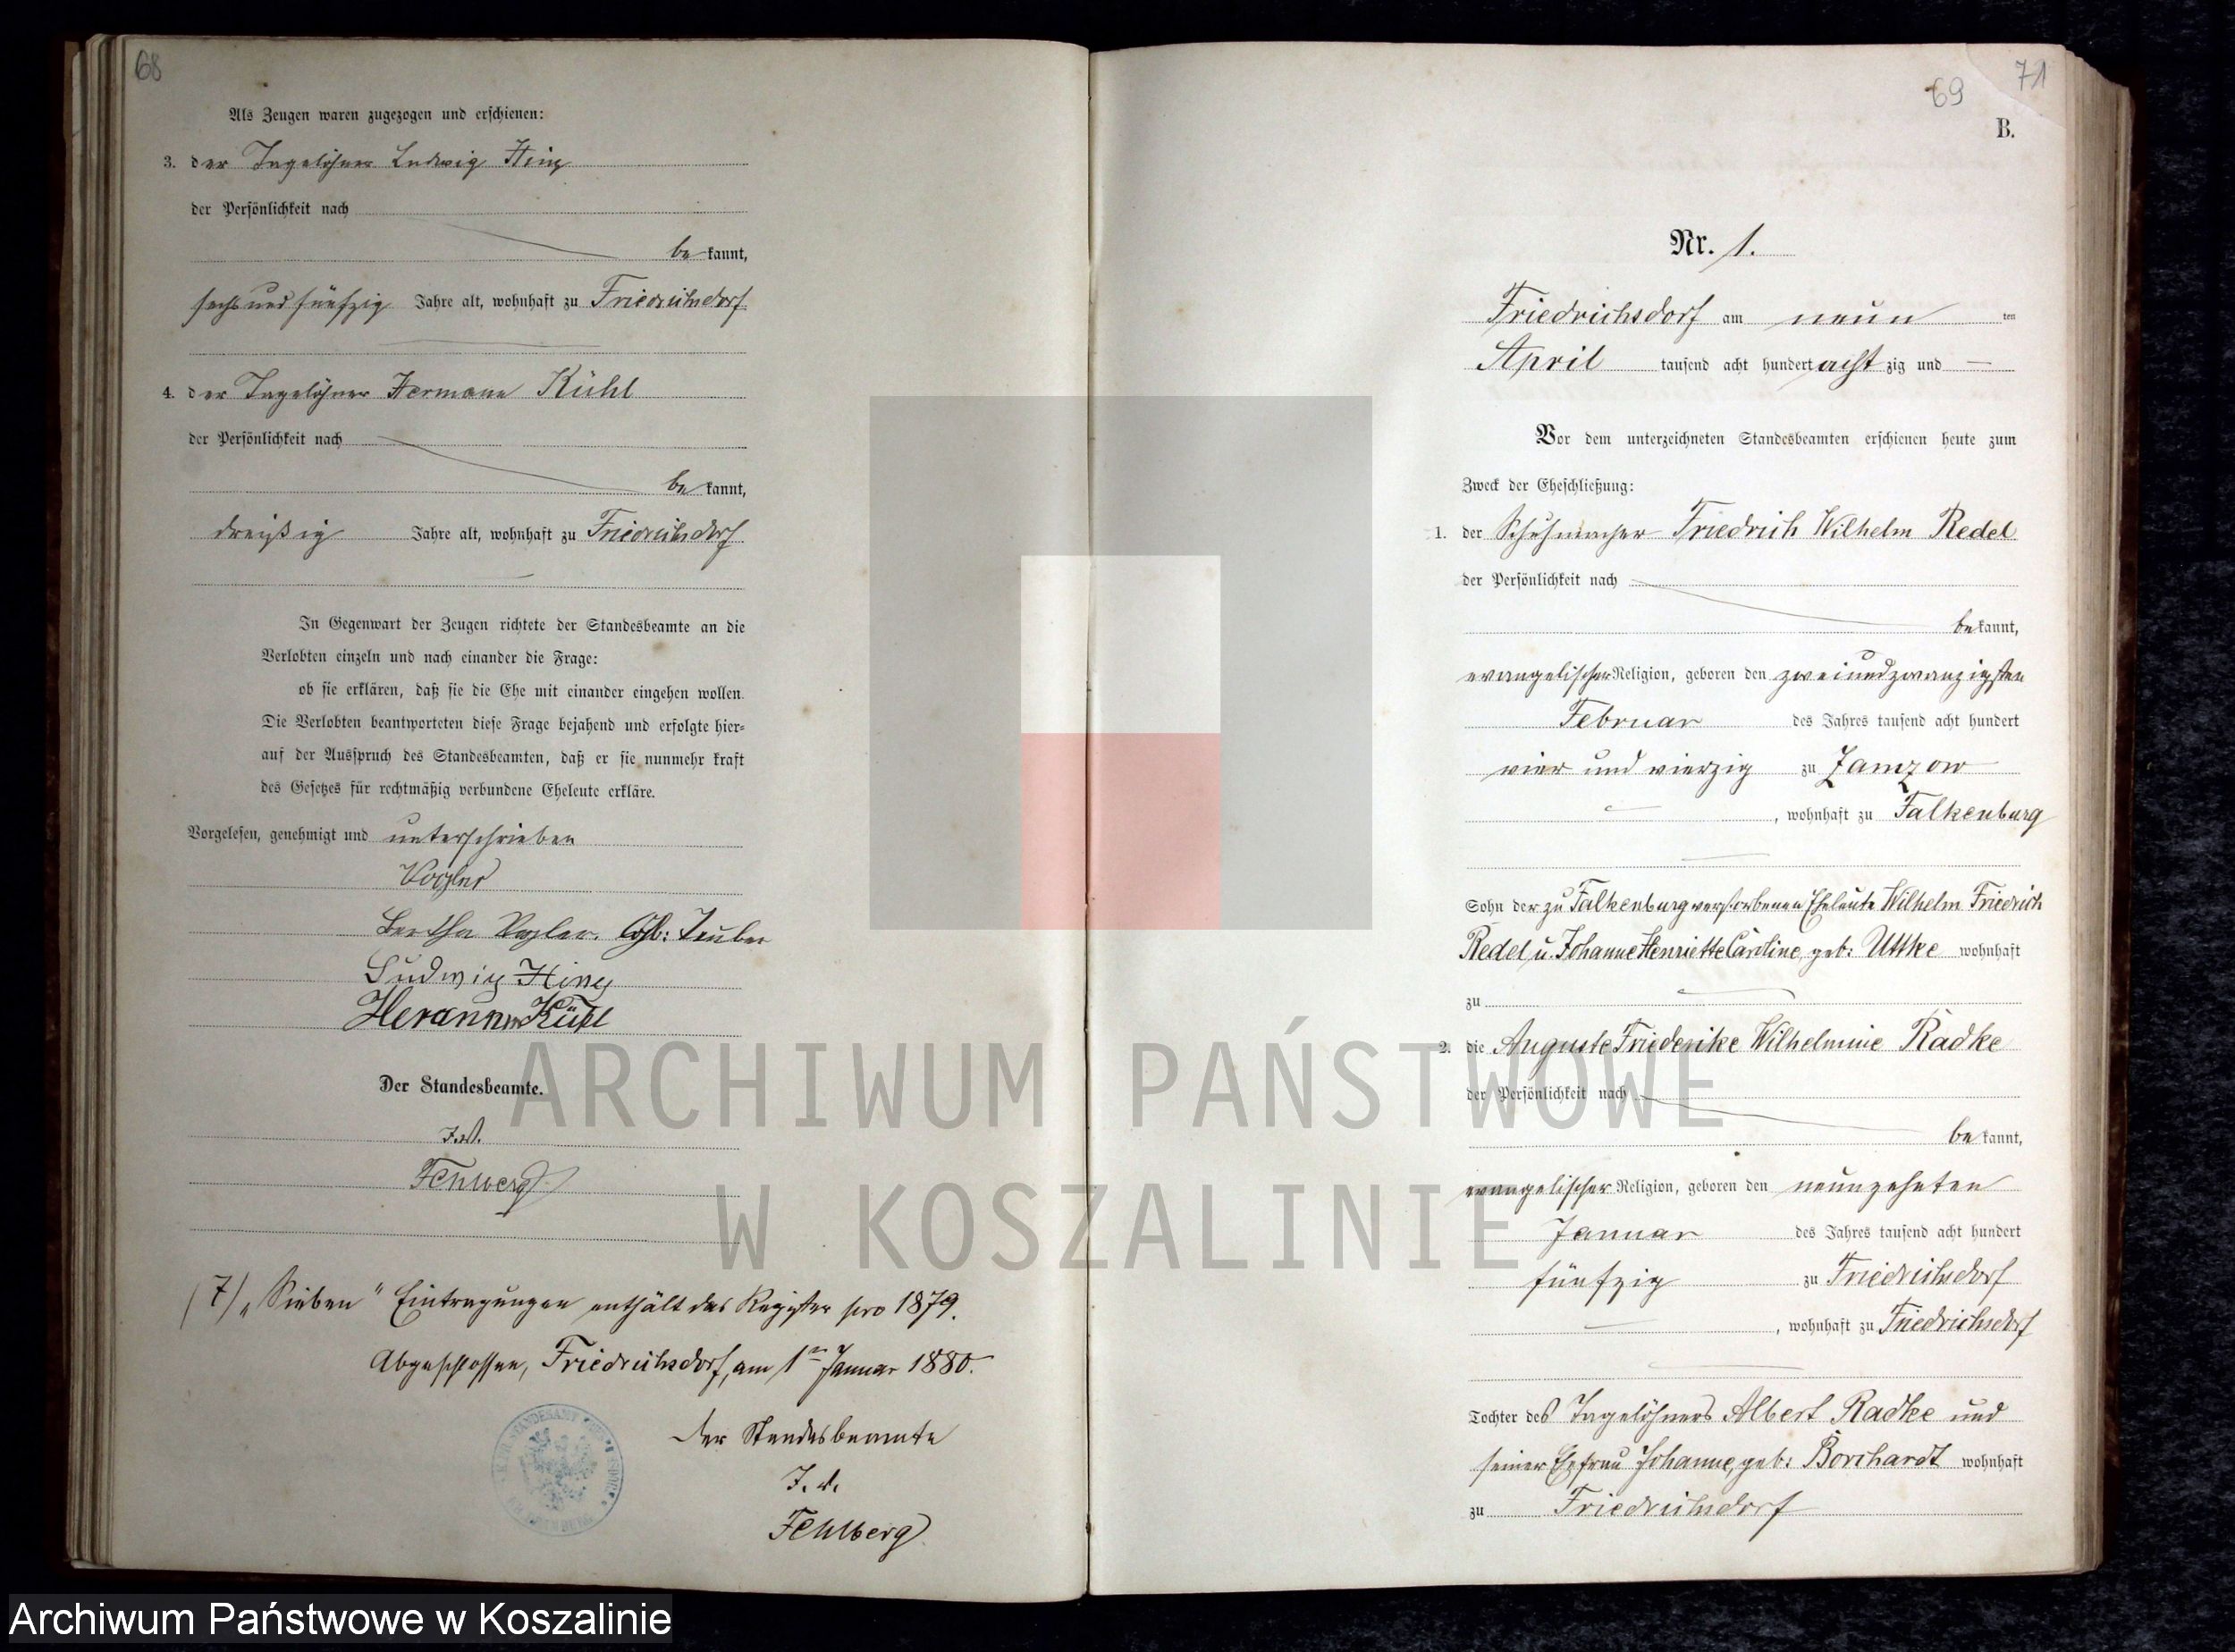 68
Als Zeugen waren zugezogen und erschienen:
3. der Tagelöhner Ludwig Hinz
der Persönlichkeit nach
be kannt,
sechs und fünfzig Jahre alt, wohnhaft zu Friedrichsdorf
4. der Tagelöhner Hermann Kühl
der Persönlichkeit nach
be kannt,
dreißig Jahre alt, wohnhaft zu Friedrichsdorf
In Gegenwart der Zeugen richtete der Standesbeamte an die
Verlobten einzeln und nach einander die Frage:
ob sie erklären, daß sie die Ehe mit einander eingehen wollen.
Die Verlobten beantworteten diese Frage bejahend und erfolgte hier-
auf der Ausspruch des Standesbeamten, daß er sie nunmehr kraft
des Gesetzes für rechtmäßig verbundene Eheleute erkläre.
Vorgelesen, genehmigt und unterschrieben
Vogler
Bertha Vogler. Geb: Teuber
Ludwig Hinz
Herann Kühl
Der Standesbeamte.
I.V.
Fehlberg
(7) „Sieben" Eintragungen enthält das Register pro 1879.
Abgeschlossen, Friedrichsdorf, am 1ten Januar 1880.
Der Standesbeamte
I. V.
Fehlberg
69 71
B.
Nr. 1.
Friedrichsdorf am neun ten
April tausend acht hundert acht zig und —
Vor dem unterzeichneten Standesbeamten erschienen heute zum
Zweck der Eheschließung:
1. der Schuhmacher Friedrich Wilhelm Redel
der Persönlichkeit nach
be kannt,
evangelischer Religion, geboren den zweiundzwanzigsten
Februar des Jahres tausend acht hundert
vier und vierzig zu Zamzow
, wohnhaft zu Falkenburg
Sohn der zu Falkenburg verstorbenen Eheleute Wilhelm Friedrich
Redel u. Johanne Henriette Caroline, geb: Uttke wohnhaft
zu
2. die Auguste Friederike Wilhelmine Radke
der Persönlichkeit nach
be kannt,
evangelischer Religion, geboren den neunzehnten
Januar des Jahres tausend acht hundert
fünfzig zu Friedrichsdorf
, wohnhaft zu Friedrichsdorf
Tochter des Tagelöhners Albert Radke und
seiner Ehefrau Johanne, geb: Borchardt wohnhaft
zu Friedrichsdorf
ARCHIWUM PAŃSTWOWE
W KOSZALINIE
Archiwum Państwowe w Koszalinie